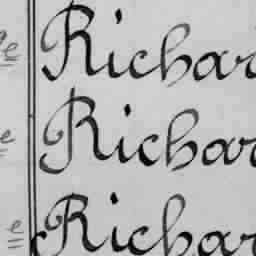 Richar
Richar
Richar